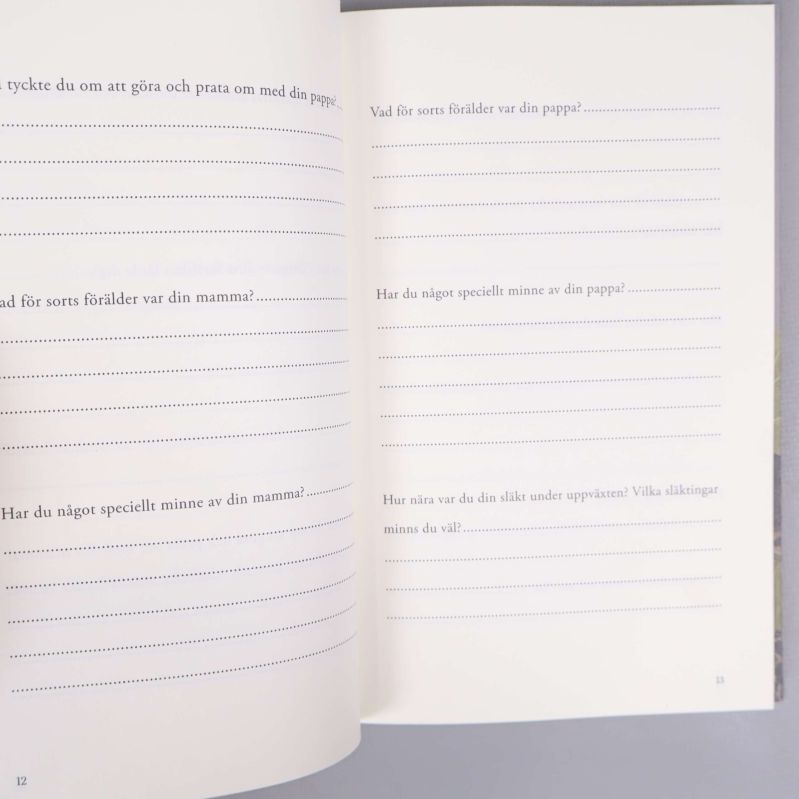 tyckte du om att göra och prata om med din pappa?
ad för sorts förälder var din mamma?
Har du något speciellt minne av din mamma?
12
Vad för sorts förälder var din pappa?
Har du något speciellt minne av din pappa?
Hur nära var du din släkt under uppväxten? Vilka släktingar
minns du väl?
13